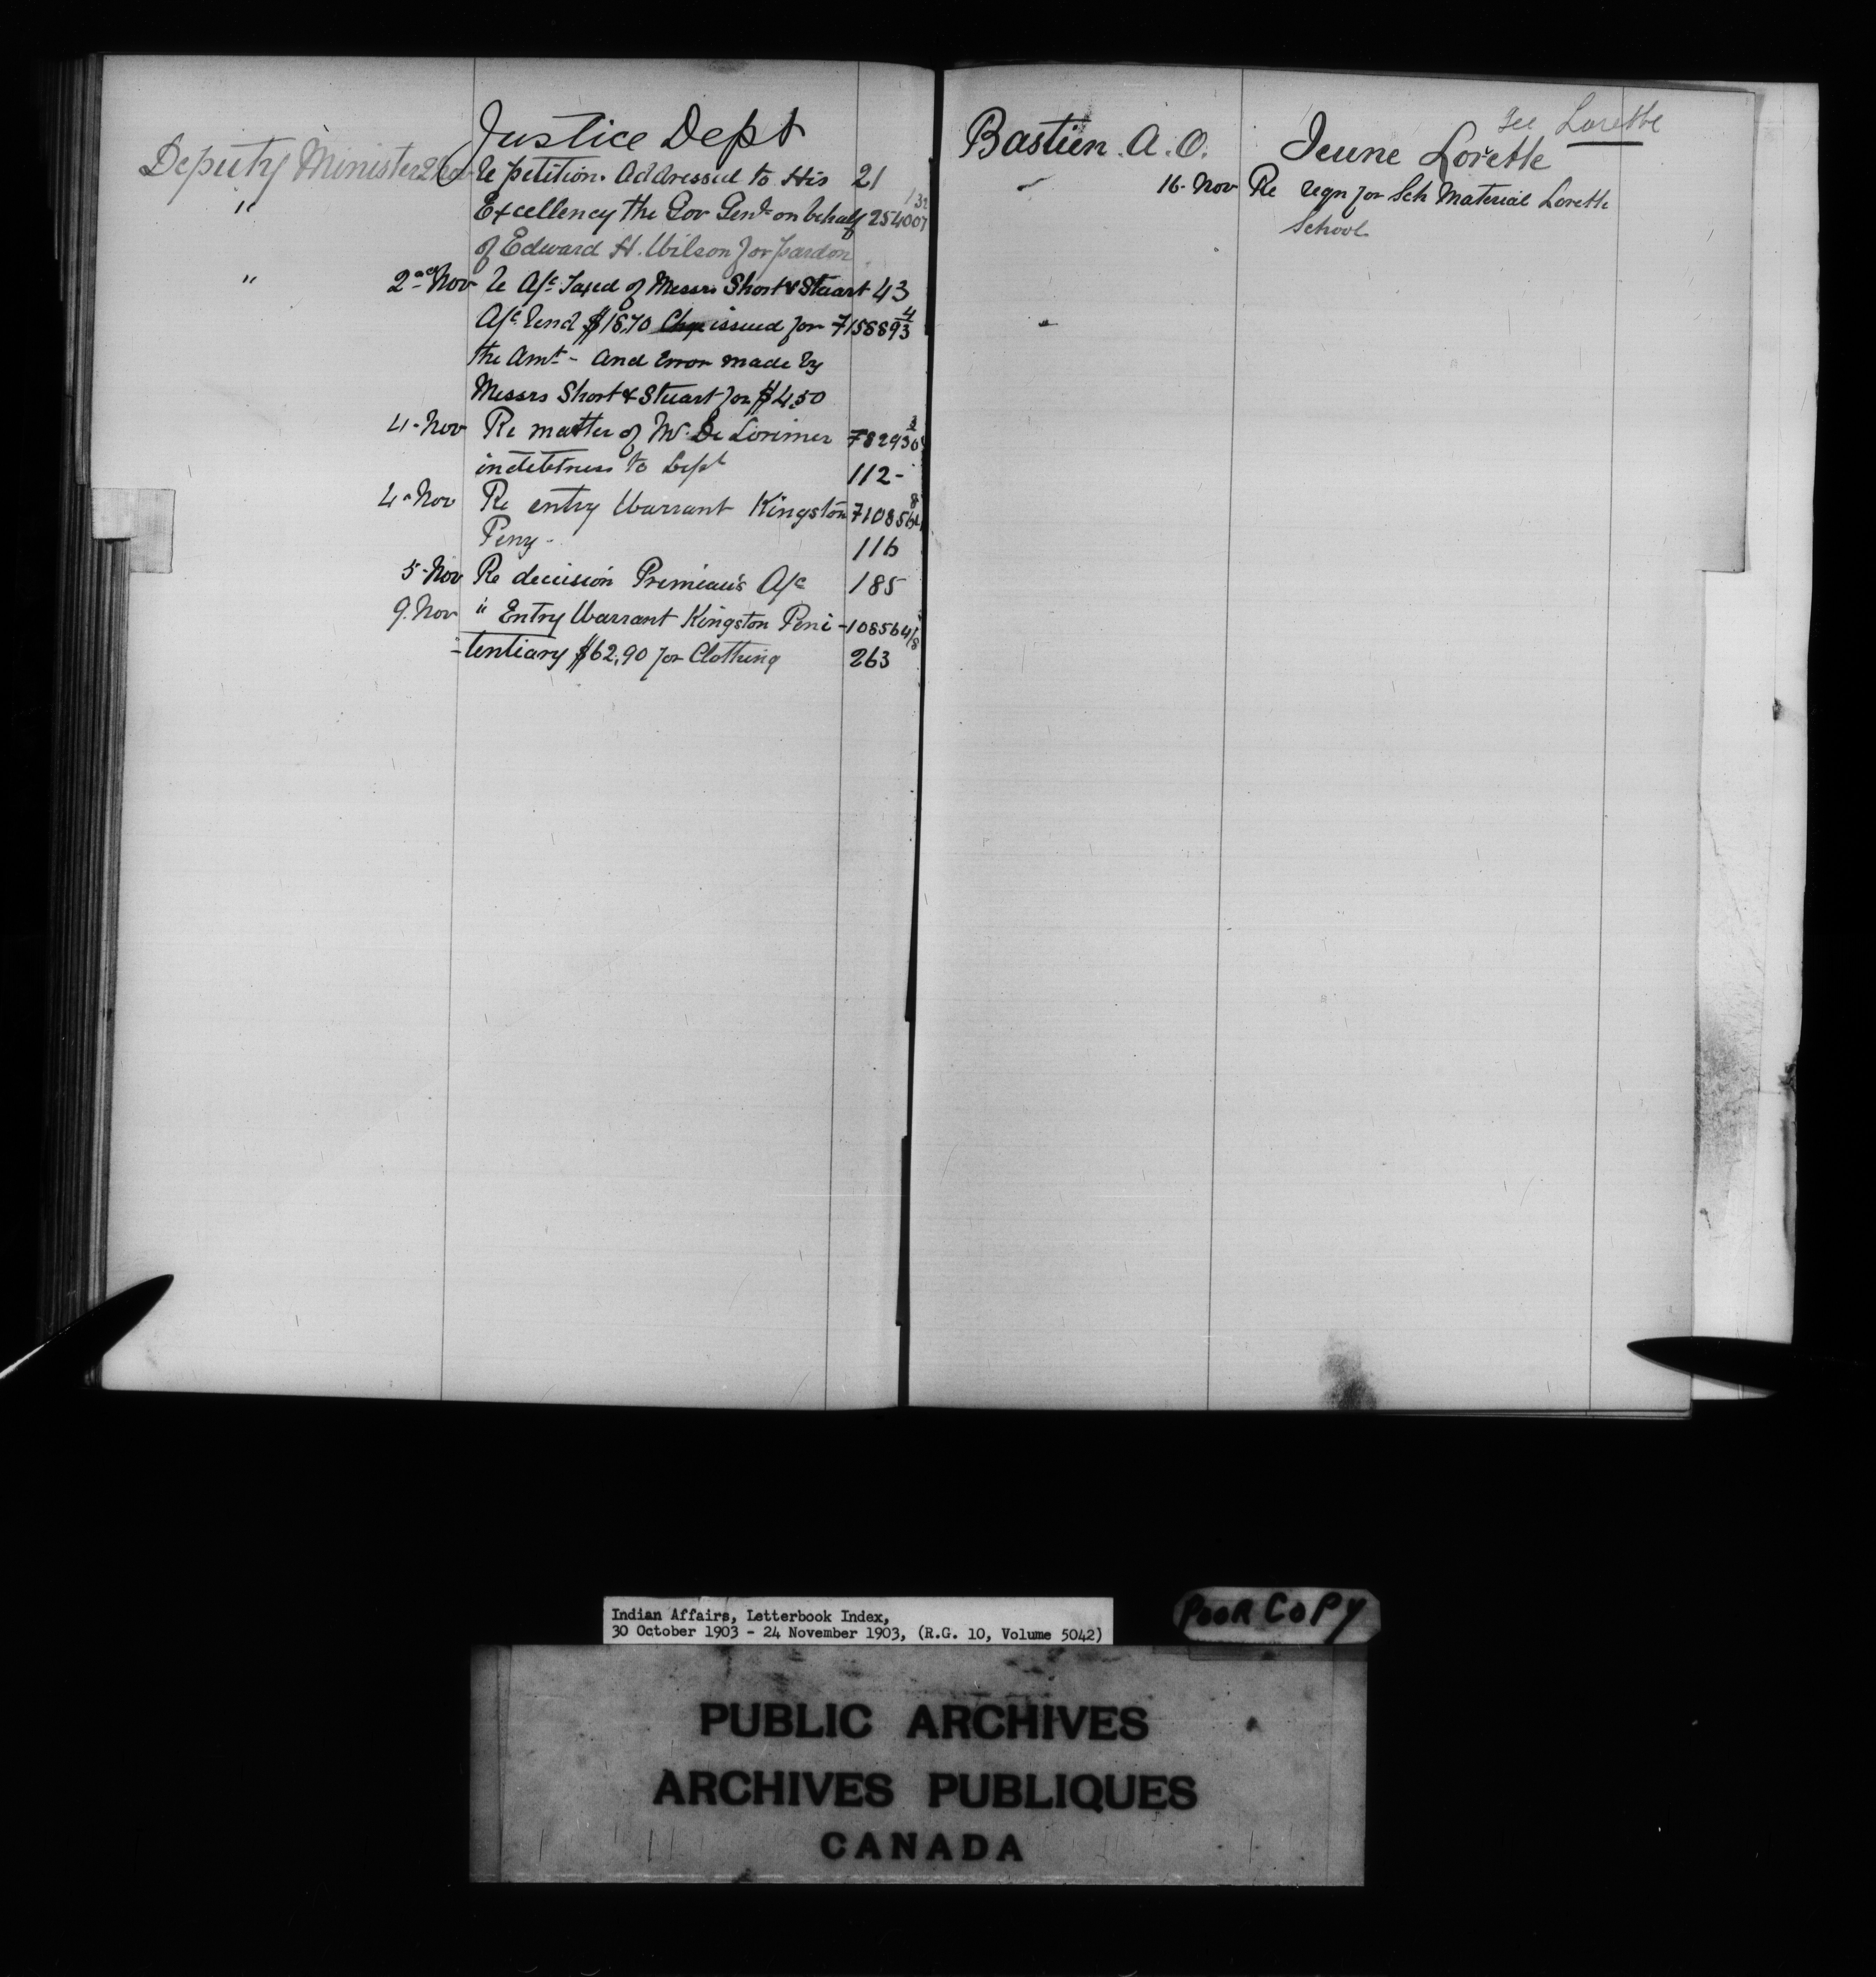 Justice Dept
Deputy Minister 2 Nov Re petition. Addressed to His 21
" Excellency the Gov Genl on behalf 254007
of Edward H. Wilson for pardon
" 2nd Nov Re A/c Taxed of Messrs Short & Stuart 43
A/c Rend $18.70 Chqe issued for 715889 3/4
the Amt - And Error made by
Messrs Short & Stuart for $4.50
4-Nov Re matter of Mr. De Lorimer
indebtness to Dept 112-
4-Nov Re entry Warrant Kingston
Peny- 116
5-Nov Re decision Premieau's A/c 185
9.Nov " Entry Warrant Kingston Peni- 108564/8
-tentiary $62,90 for Clothing 263
See Lorette
Bastien. A. O. Jeune Lorette
16-Nov Re reqn for Sch Material Lorette
School
Indian Affairs, Letterbook Index,
30 October 1903 - 24 November 1903, (R.G. 10, Volume 5042)
POOR COPY
PUBLIC ARCHIVES
ARCHIVES PUBLIQUES
CANADA